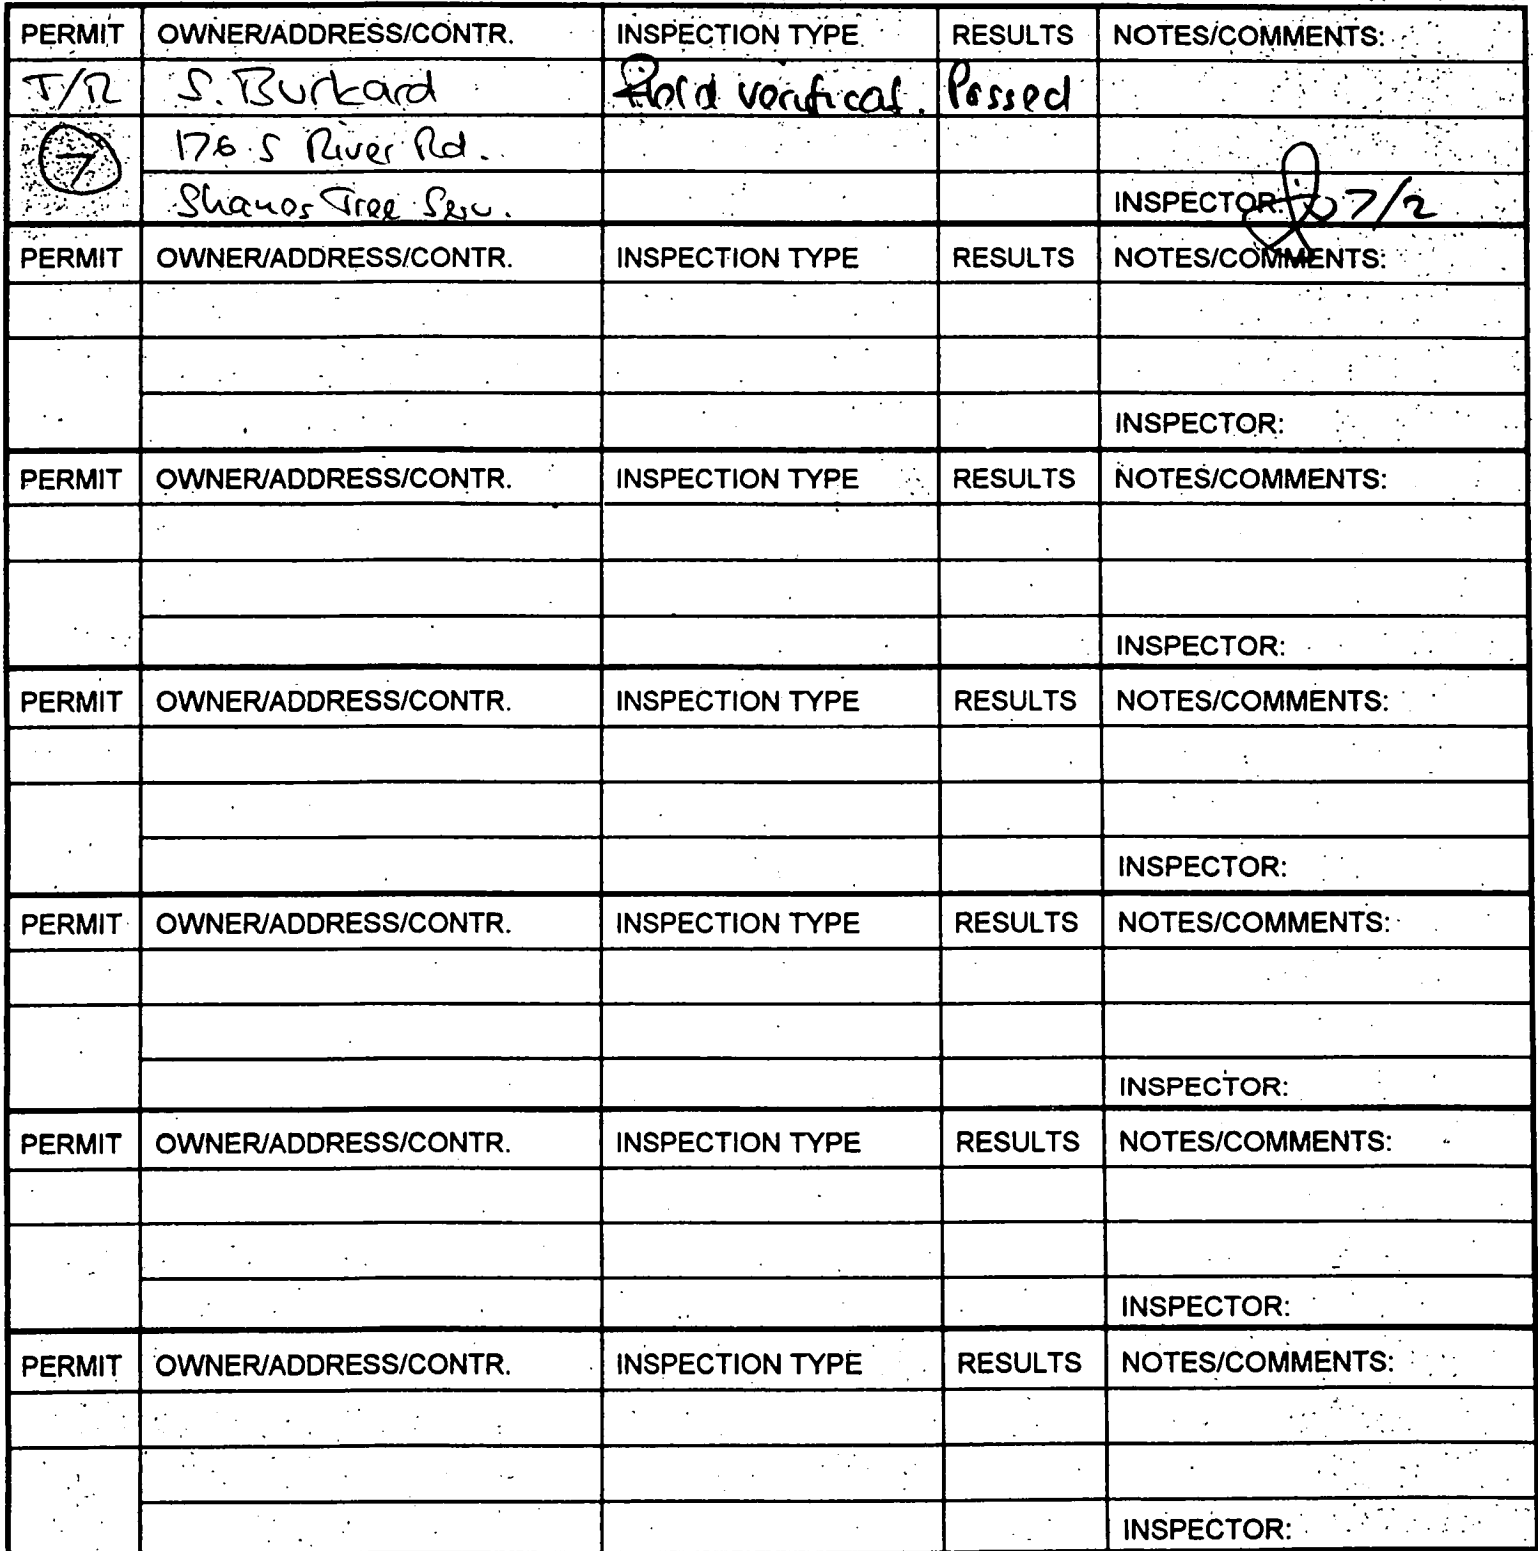 PERMIT OWNER/ADDRESS/CONTR. INSPECTION TYPE RESULTS NOTES/COMMENTS:
T/R S. Burkard Field verificat. Passed
7 176 S River Rd.
Shanes Tree Serv. INSPECTOR: 7/2
PERMIT OWNER/ADDRESS/CONTR. INSPECTION TYPE RESULTS NOTES/COMMENTS:
INSPECTOR:
PERMIT OWNER/ADDRESS/CONTR. INSPECTION TYPE RESULTS NOTES/COMMENTS:
INSPECTOR:
PERMIT OWNER/ADDRESS/CONTR. INSPECTION TYPE RESULTS NOTES/COMMENTS:
INSPECTOR:
PERMIT OWNER/ADDRESS/CONTR. INSPECTION TYPE RESULTS NOTES/COMMENTS:
INSPECTOR:
PERMIT OWNER/ADDRESS/CONTR. INSPECTION TYPE RESULTS NOTES/COMMENTS:
INSPECTOR:
PERMIT OWNER/ADDRESS/CONTR. INSPECTION TYPE RESULTS NOTES/COMMENTS:
INSPECTOR: